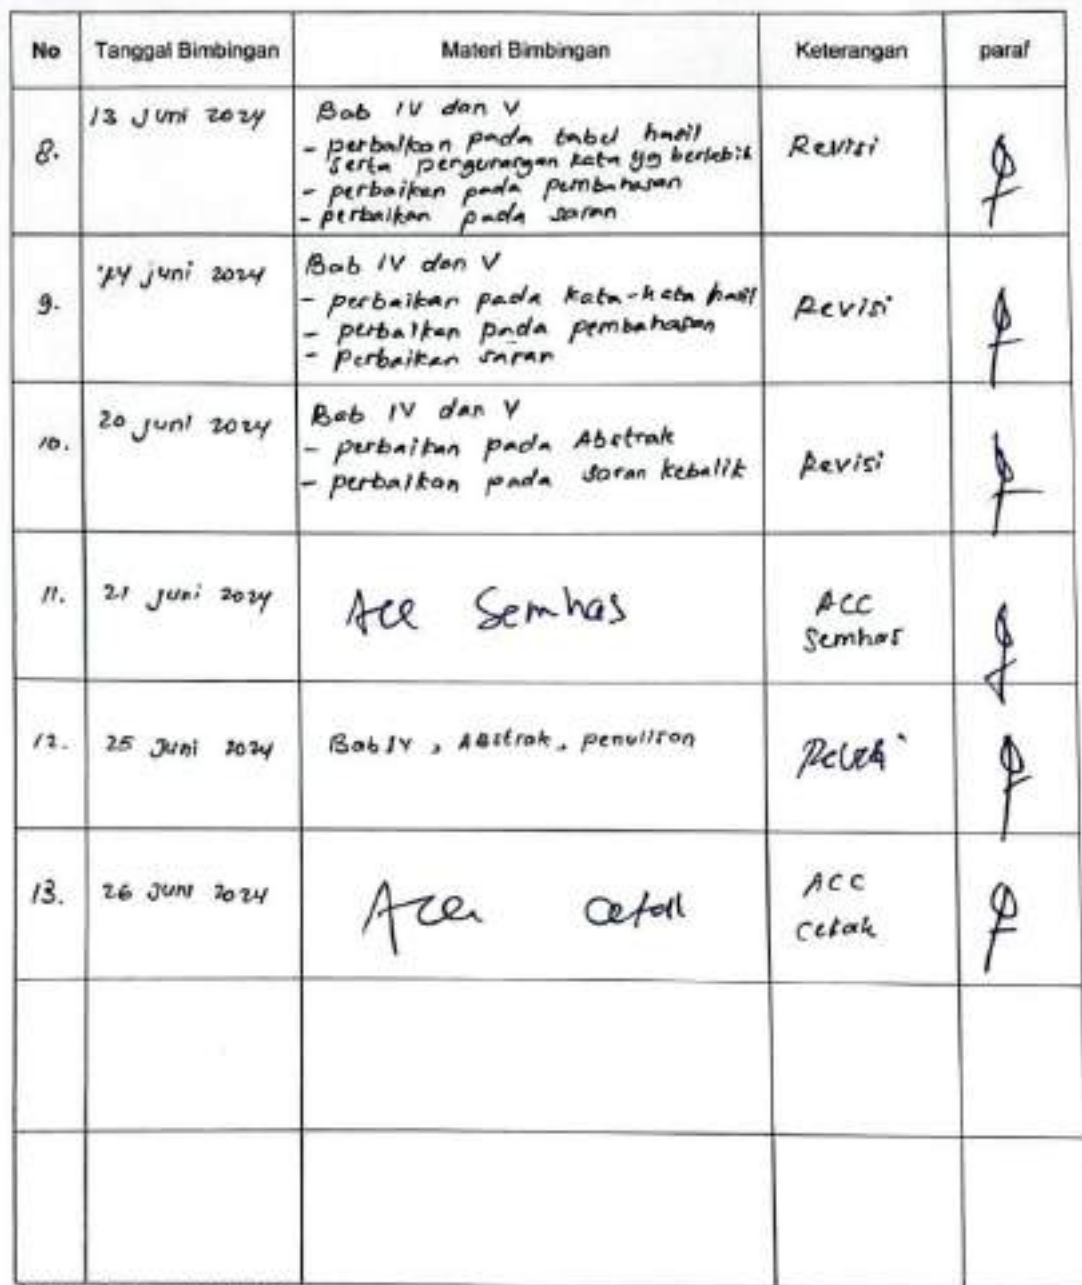 No Tanggal Bimbingan Materi Bimbingan Keterangan paraf
8. 13 Juni 2024 Bab IV dan V Revisi
- perbaikan pada tabel hasil
serta pengurangan kata yg berlebih
- perbaikan pada pembahasan
- perbaikan pada saran
9. 14 juni 2024 Bab IV dan V Revisi
- perbaikan pada kata-kata hasil
- perbaikan pada pembahasan
- Perbaikan saran
10. 20 juni 2024 Bab IV dan V Revisi
- perbaikan pada Abstrak
- perbaikan pada saran kebalik
11. 21 juni 2024 Acc Semhas ACC
Semhas
12. 25 Juni 2024 Bab IV, Abstrak, penulisan
13. 26 Juni 2024 Acc cetak ACC
cetak